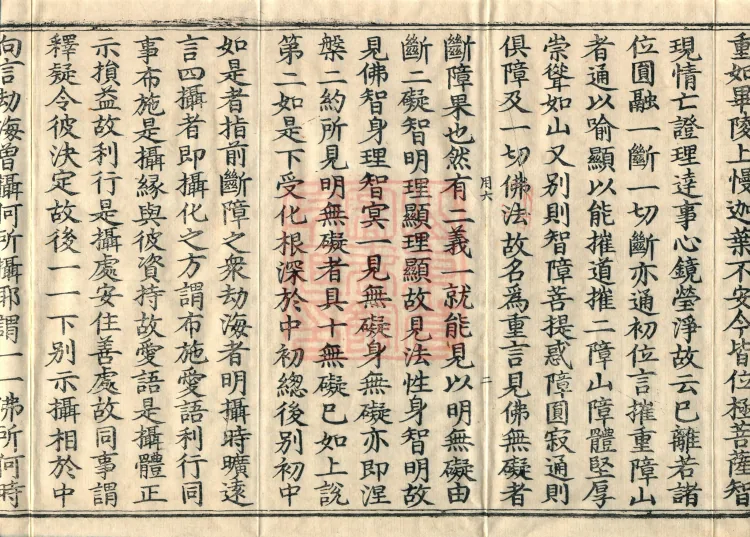 重如畢陵上慢迦葉不安今皆位極菩薩智
現情亡證理達事心鏡瑩淨故云已離若諸
位圓融一斷一切斷亦通初位言摧重障山
者通以喻顯以能摧道摧二障山障體堅厚
崇聳如山又別則智障菩提惑障圓寂通則
俱障及一切佛法故名為重言見佛無礙者
用六
二
斷障果也然有二義一就能見以明無礙由
斷二礙智明理顯理顯故見法性身智明故
見佛智身理智冥一見無礙身無礙亦即涅
槃二約所見明無礙者具十無礙已如上說
第二如是下受化根深於中初總後別初中
如是者指前斷障之衆劫海者明攝時曠遠
言四攝者即攝化之方謂布施愛語利行同
事布施是攝緣與彼資持故愛語是攝體正
示損益故利行是攝處安住善處故同事謂
釋疑令彼決定故後一一下別示攝相於中
向言劫海曾攝何所攝耶謂一一佛所何時